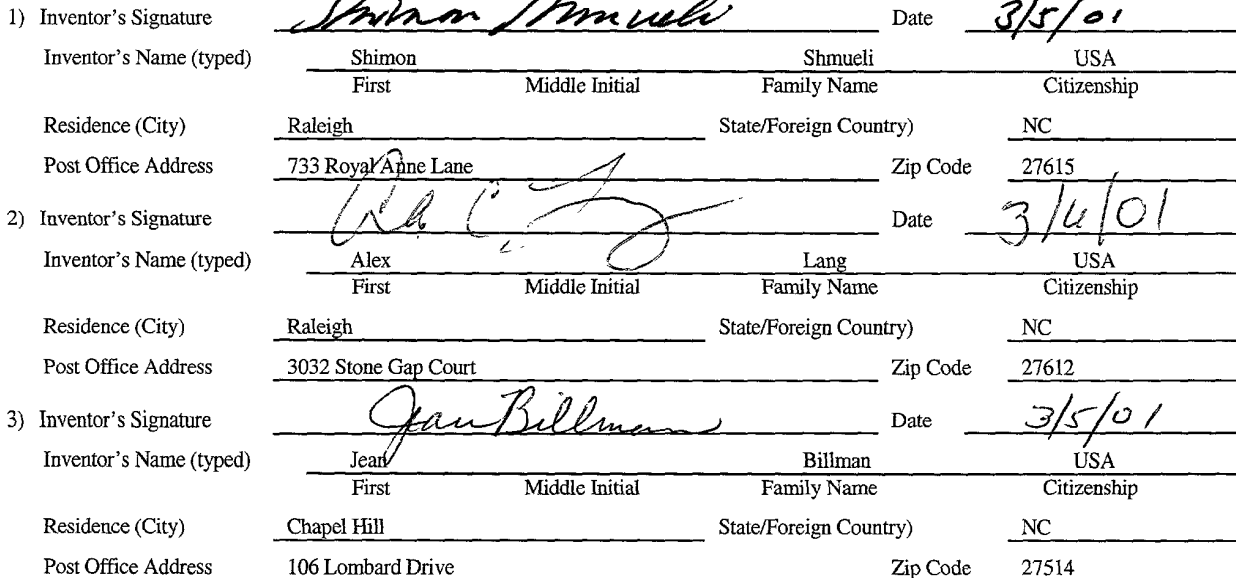 1) Inventor's Signature Shimon Shmueli Date 3/5/01
Inventor's Name (typed) Shimon Shmueli USA
First Middle Initial Family Name Citizenship
Residence (City) Raleigh State/Foreign Country) NC
Post Office Address 733 Royal Anne Lane Zip Code 27615
2) Inventor's Signature Date
Inventor's Name (typed) Alex Lang USA
First Middle Initial Family Name Citizenship
Residence (City) Raleigh State/Foreign Country) NC
Post Office Address 3032 Stone Gap Court Zip Code 27612
3) Inventor's Signature Jean Billman Date 3/5/01
Inventor's Name (typed) Jean Billman USA
First Middle Initial Family Name Citizenship
Residence (City) Chapel Hill State/Foreign Country) NC
Post Office Address 106 Lombard Drive Zip Code 27514